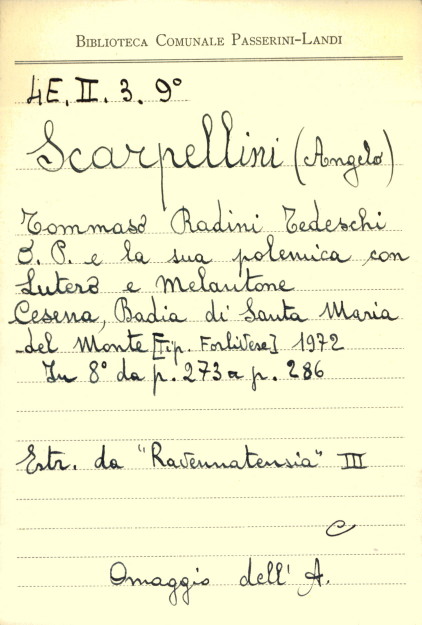 BIBLIOTECA COMUNALE PASSERINI-LANDI
4E. II. 3. 9°
Scarpellini (Angelo)
Tommaso Radini Tedeschi
O. P. e la sua polemica con
Lutero e Melantone
Cesena, Badia di Santa Maria
del Monte [Tip. Forlivese] 1972
In 8° da p. 273 a p. 286
Estr. da "Ravennatensia" III
C
Omaggio dell' A.